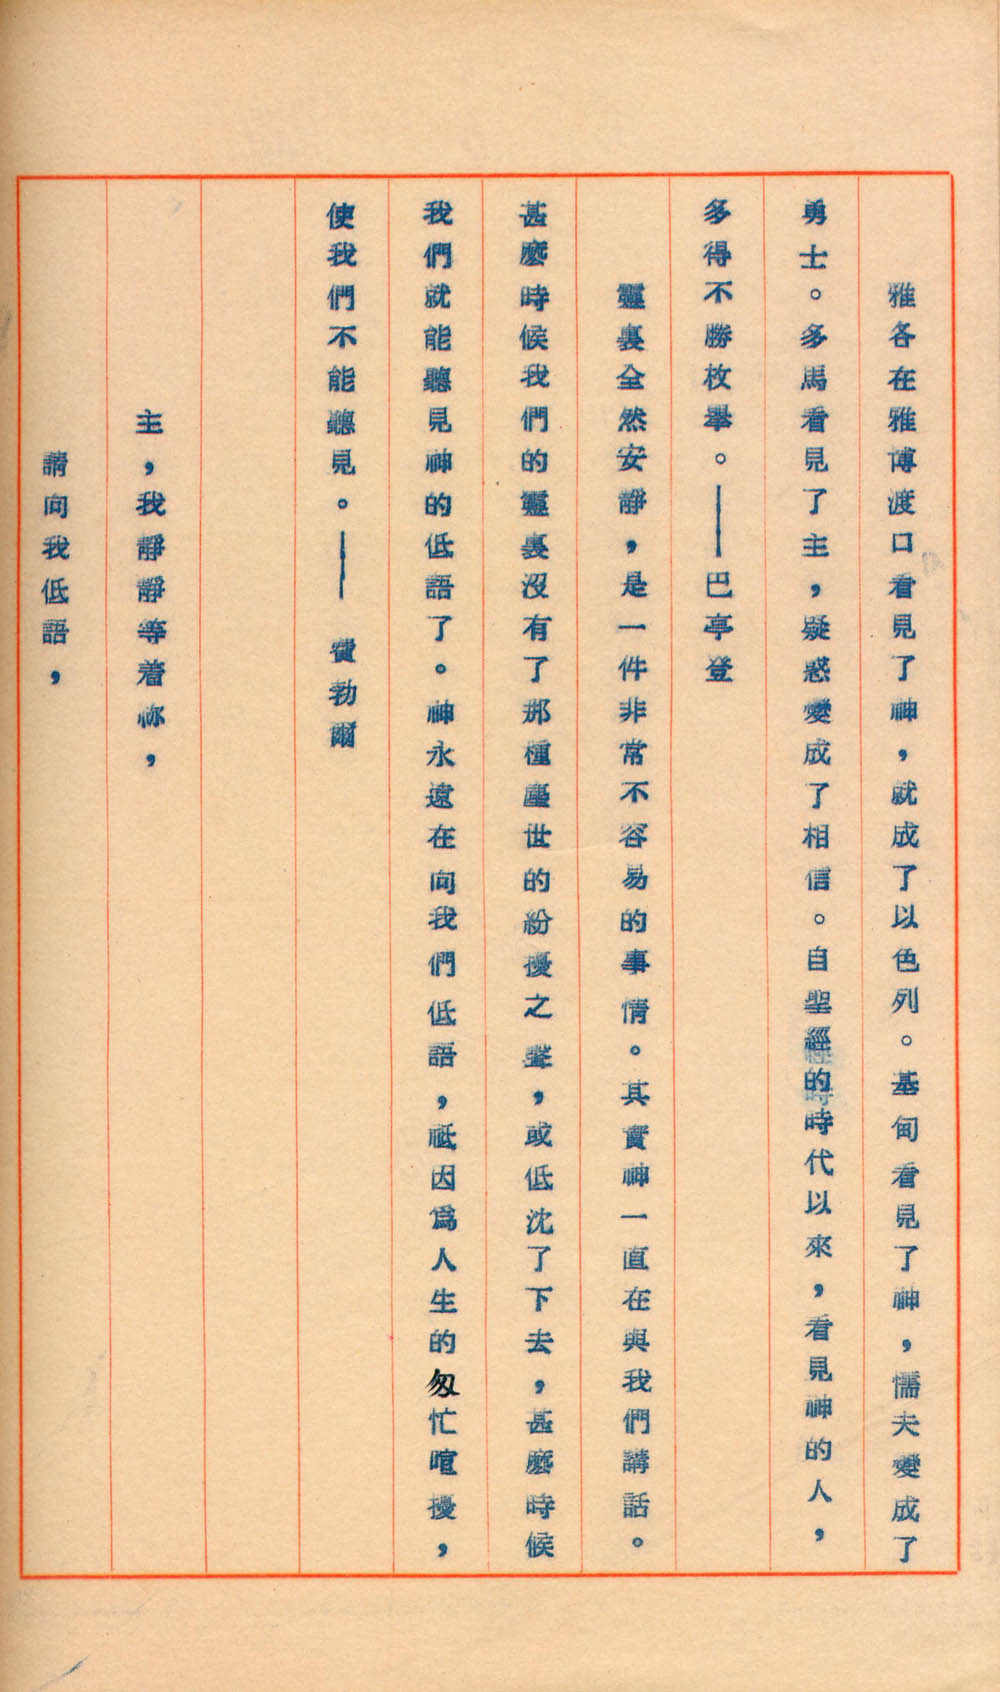 雅各在雅博渡口看見了神，就成了以色列。基甸看見了神，懦夫變成了
勇士。多馬看見了主，疑惑變成了相信。自聖經的時代以來，看見神的人，
多得不勝枚舉。——巴亭登
靈裏全然安靜，是一件非常不容易的事情。其實神一直在與我們講話。
甚麼時候我們的靈裏沒有了那種塵世的紛擾之聲，或低沈了下去，甚麼時候
我們就能聽見神的低語了。神永遠在向我們低語，祗因為人生的匆忙喧擾，
使我們不能聽見。——費勃爾
主，我靜靜等着祢，
請向我低語，